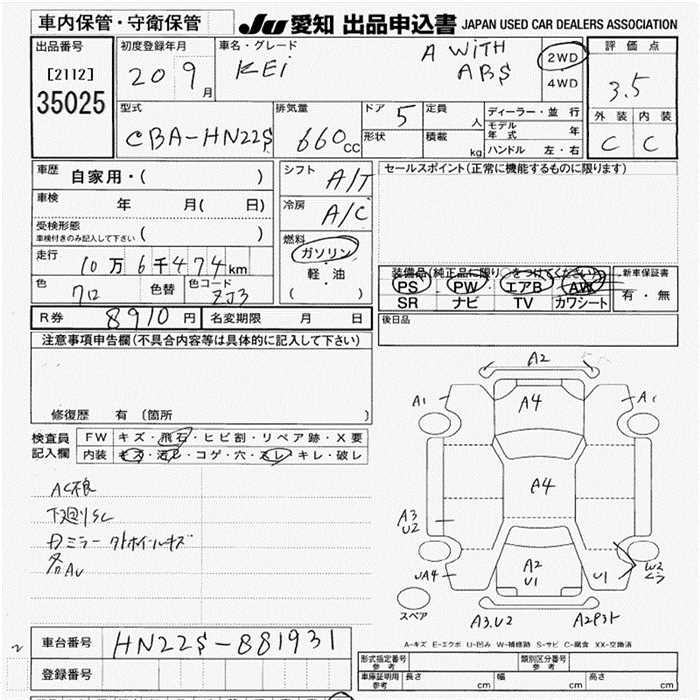 車内保管・守衛保管 JU 愛知 出品申込書 JAPAN USED CAR DEALERS ASSOCIATION
出品番号
[2112]
35025
初度登録年月
20 9月
車名・グレード
KEi
A WiTH
ABS
2WD
4WD
評価点
3.5
外装 内装
C C
型式
CBA-HN22S
排気量
660cc
ドア
5
形状
定員
人
積載
kg
ディーラー・並行
モデル年式 年
ハンドル 左・右
車歴
自家用・( )
車検 年 月( 日)
受検形態
車検付きのみ記入して下さい ( )
走行 10万6千474km
色 色替 色コード
ZJ3
シフト
A/T
冷房
A/C
燃料
ガソリン
軽・油
( )
セールスポイント(正常に機能するものに限ります)
装備品(純正品に限り○をつけてください) 新車保証書
PS PW エアB AW 有・無
SR ナビ TV カワシート
R券 8910円 名変期限 月 日
後日品
注意事項申告欄(不具合内容等は具体的に記入して下さい)
修復歴 有 (箇所 )
検査員記入欄
FW キズ・飛石・ヒビ割・リペア跡・X要
内装 キズ・汚レ・コゲ・穴・スレ・キレ・破レ
AC不良
下廻りSC
Dミラー タトホイールキズ
各AU
A2
A1
A4
A1
A4
A3
U2
A2
U1
U1
UA4
W2
スペア
A3.U2
A2
A-キズ E-エクボ U-凹み W-補修跡 S-サビ C-腐食 XX-交換済
車台番号 HN22S-881931
登録番号
型式指定番号 参考 類別区分番号 参考
車庫証明用 参考 長さ cm 幅 cm 高さ cm